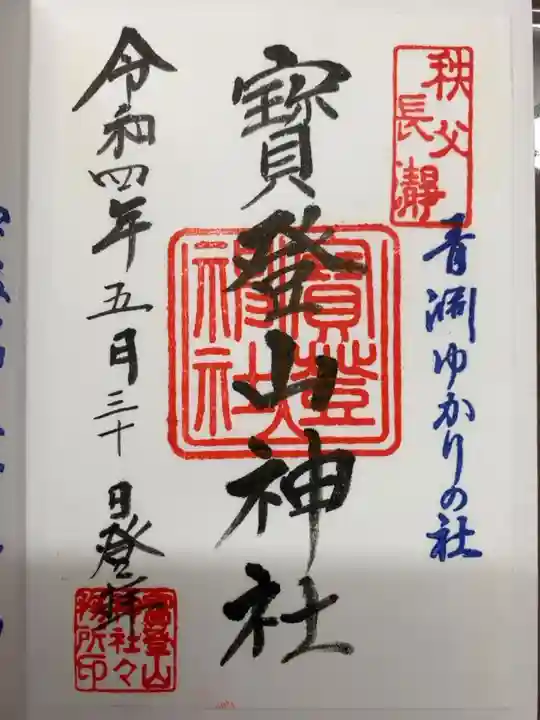 秩父
長瀞
青淵ゆかりの社
寳登山神社
寳登
神社
令和四年五月三十日登拝
寳登山
神社々
務所印